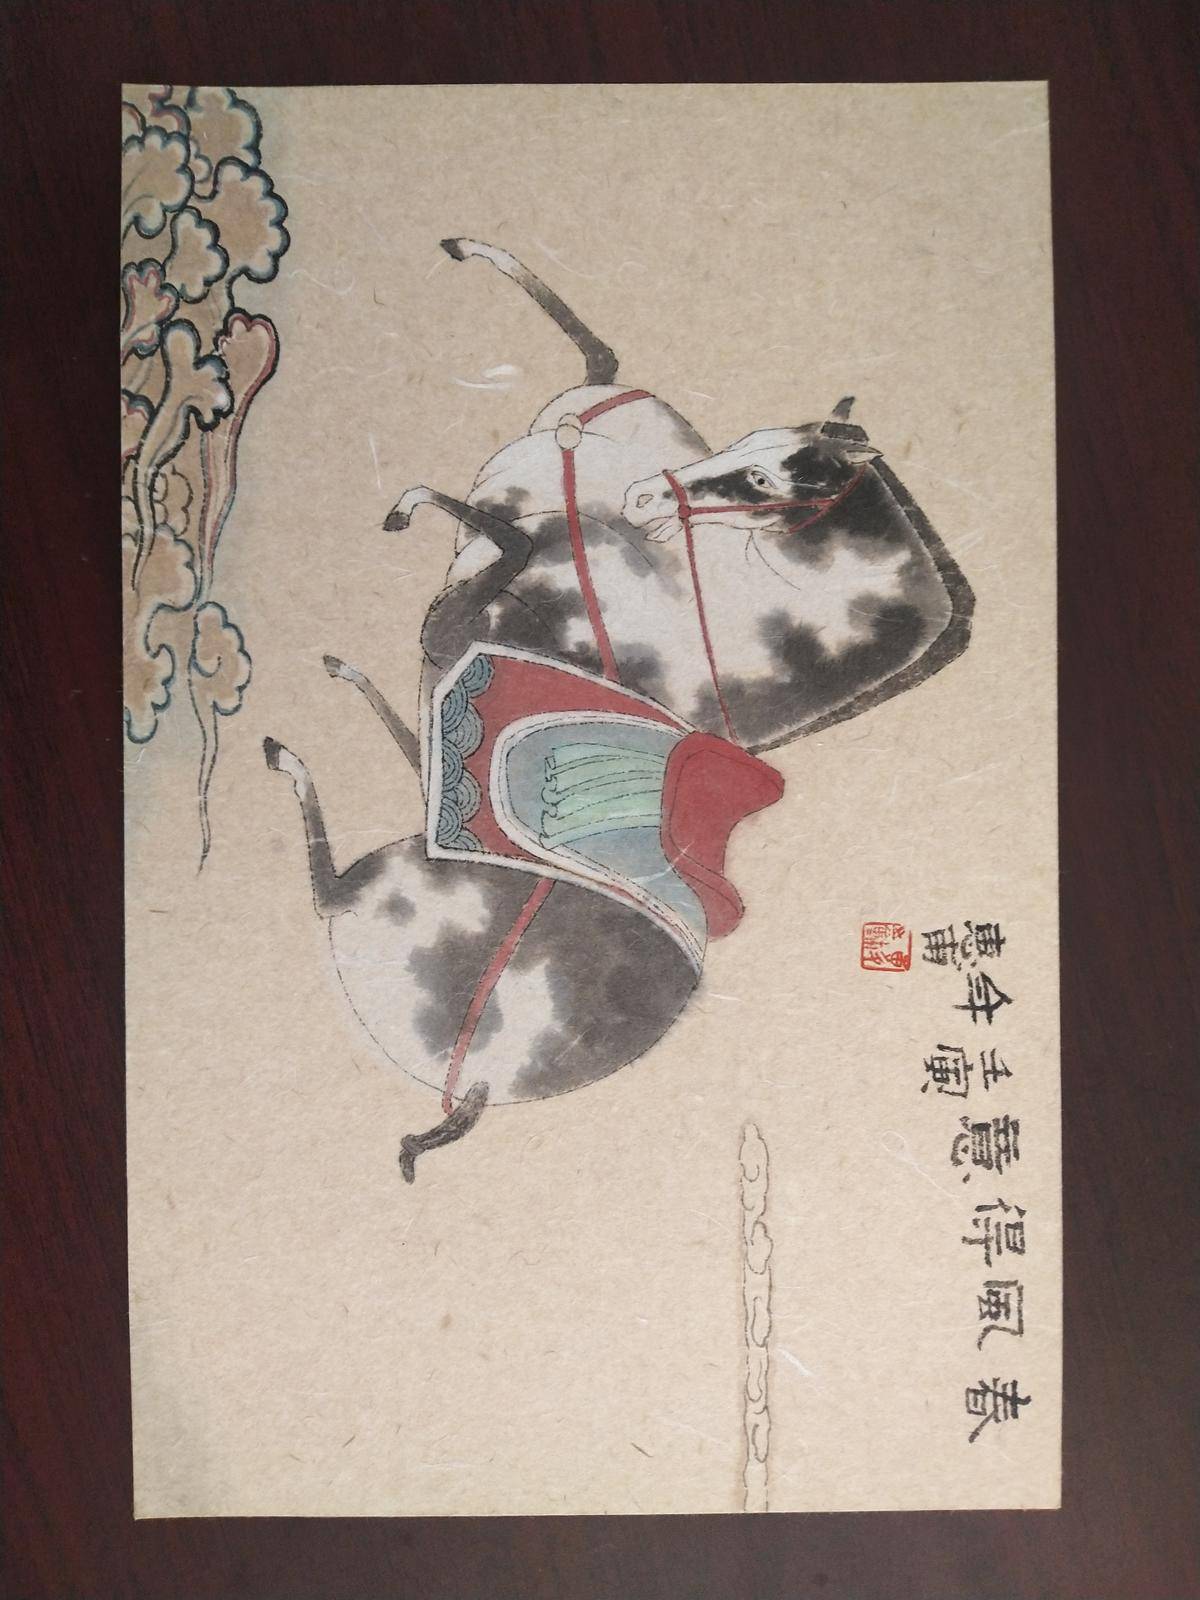 春風得意
壬寅年
惠甫